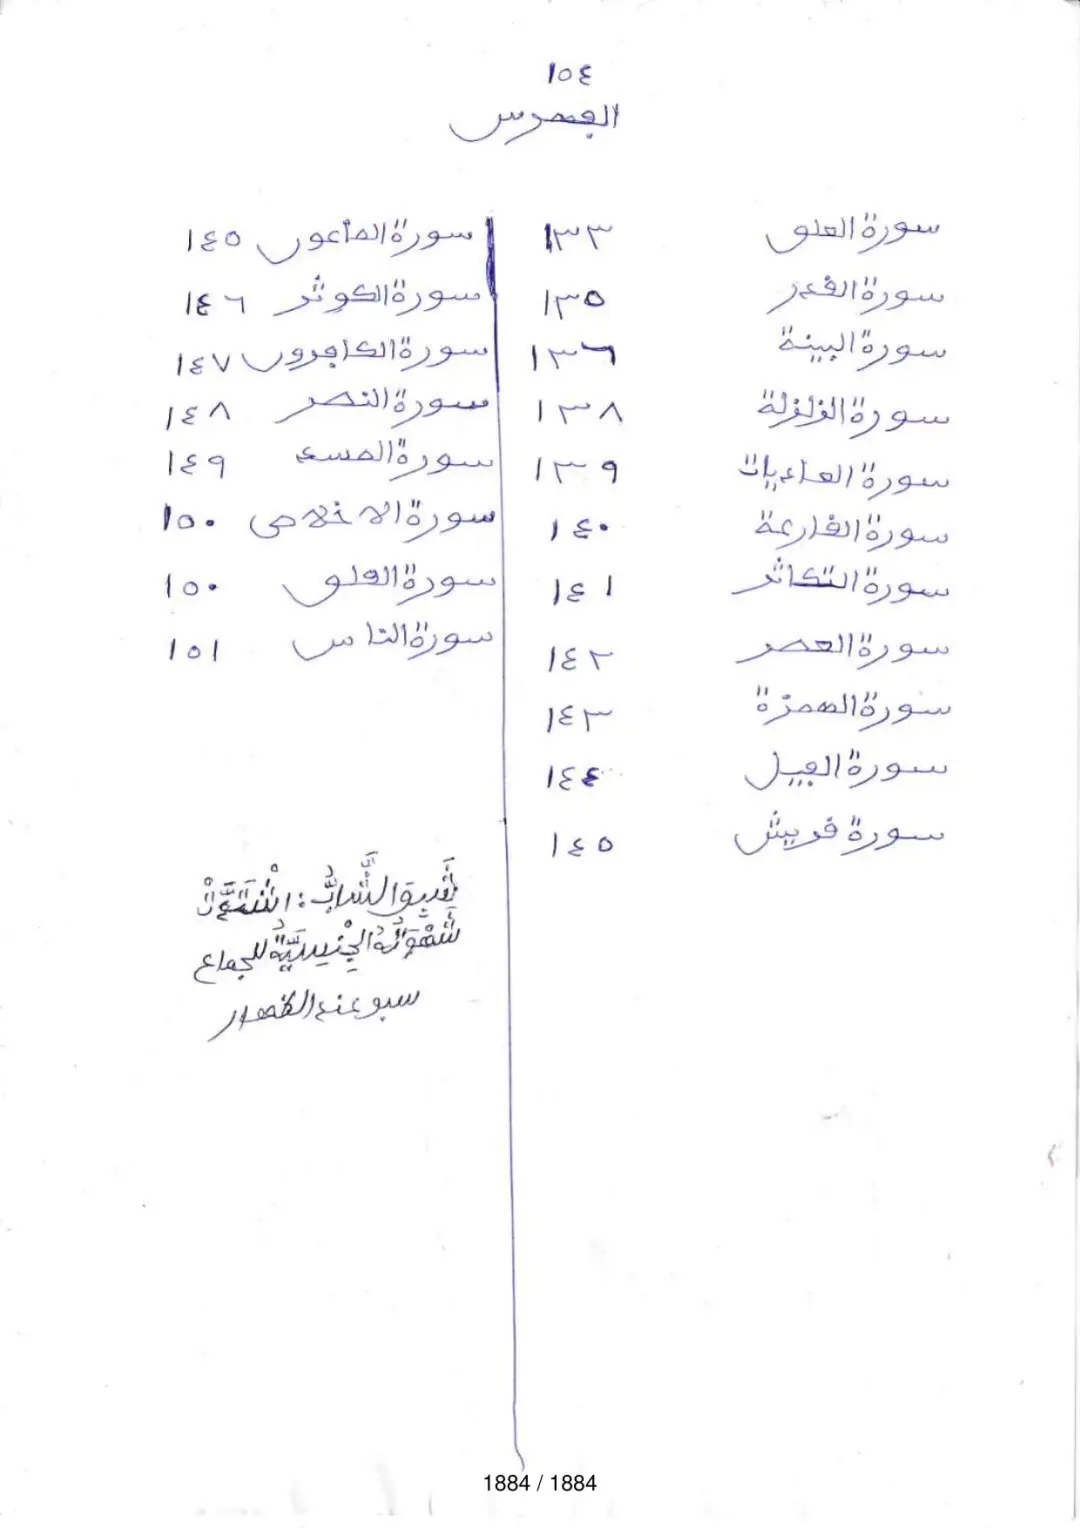 ١٥٤
الفهرس
سورة العلق ١٣٣
سورة القدر ١٣٥
سورة البينة ١٣٦
سورة الزلزلة ١٣٨
سورة العاديات ١٣٩
سورة القارعة ١٤٠
سورة التكاثر ١٤١
سورة العصر ١٤٢
سورة الهمزة ١٤٣
سورة الفيل ١٤٤
سورة قريش ١٤٥
سورة الماعون ١٤٥
سورة الكوثر ١٤٦
سورة الكافرون ١٤٧
سورة النصر ١٤٨
سورة المسد ١٤٩
سورة الاخلاص ١٥٠
سورة الفلق ١٥٠
سورة الناس ١٥١
الشَّابُّ: اشْتَدَّتْ
شَهْوَتُهُ الجِنْسِيَّةُ للجماع
1884 / 1884